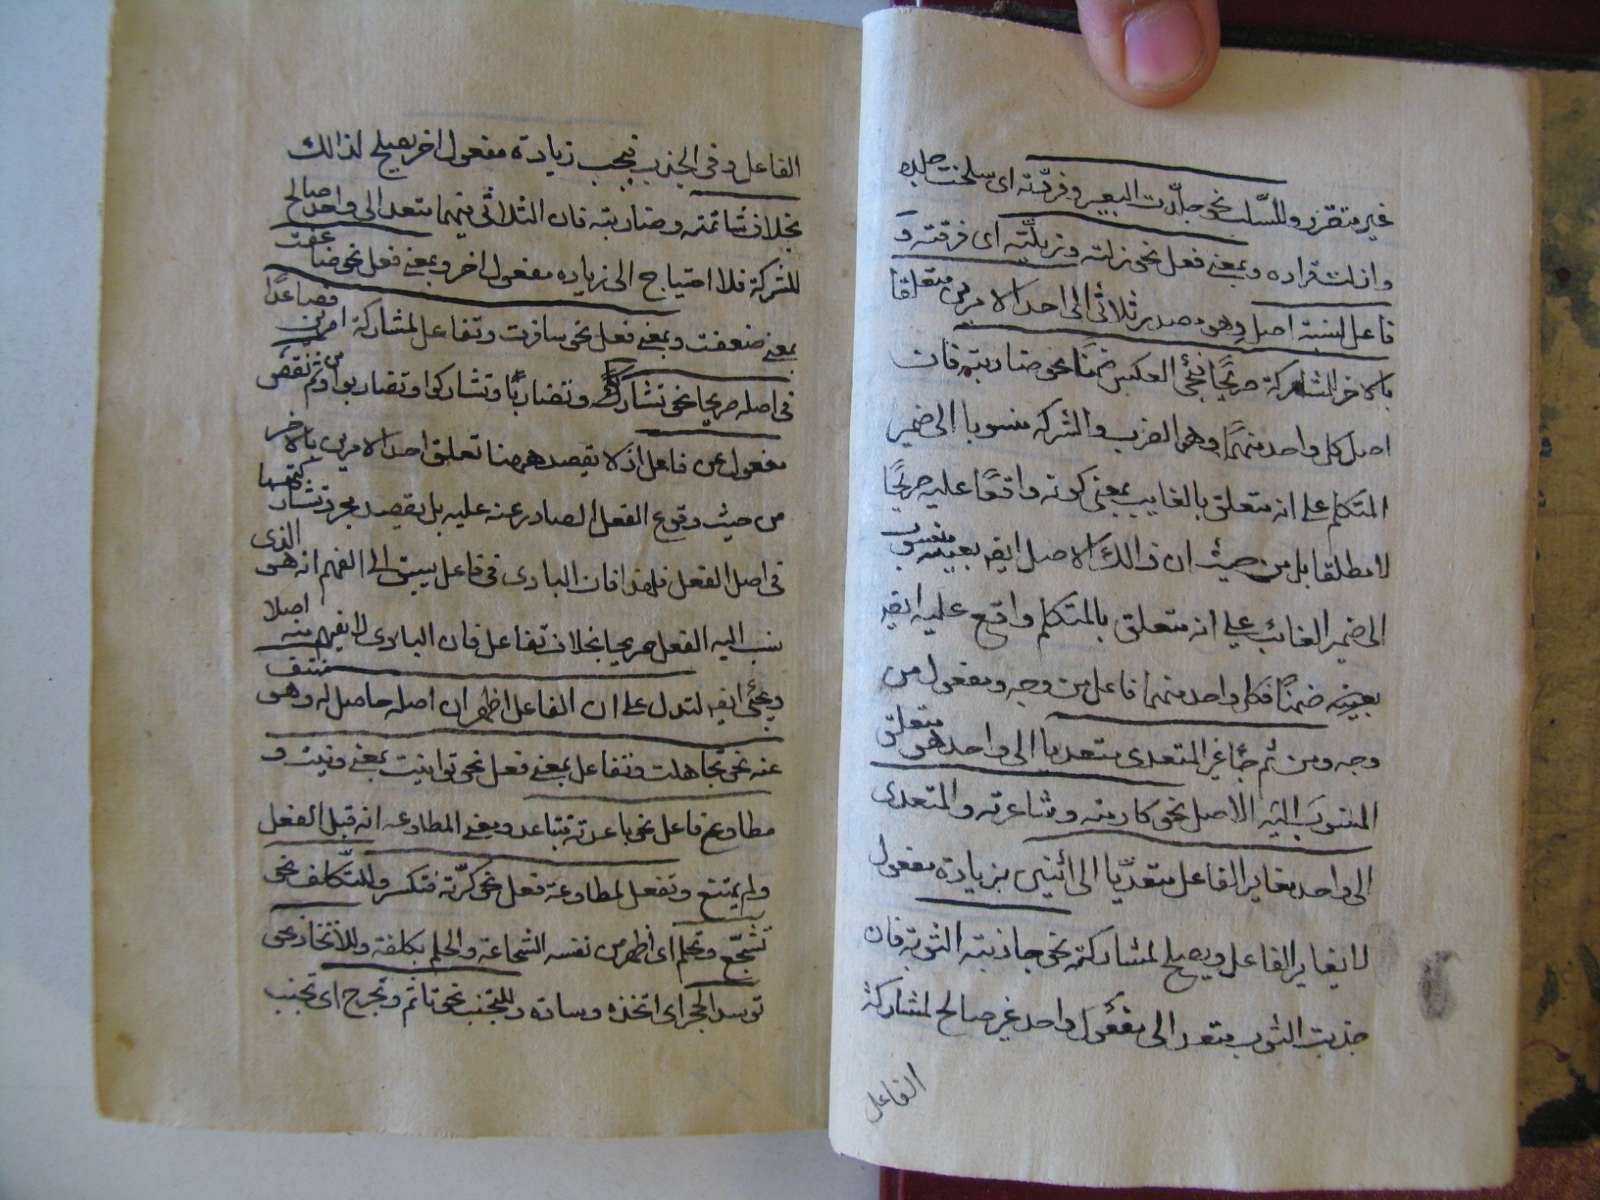 غير متقرر وللسلب نحو جلّدت البعير وقرّدته اى سلخت جلده
وازلت قراده وبمعنى فعل نحو زلته وزيلته اى فرقته و
فاعل لنسبة اصل وهو مصدر ثلاثى الى احد الامرين متعلقا
بالاخر للمشاركة صريحًا فيجئ العكس ضمنًا نحو ضاربته فان
اصل كل واحد منهما وهو الضرب والشركة منسوبا الى ضمير
المتكلم على انه متعلق بالغايب بمعنى كونه واقعًا عليه صريحًا
لا مطلقا بل من حيث ان ذالك الاصل ايضا بعينه منسوب
الى ضمير الغائب على انه متعلق بالمتكلم واقع عليه ايضا
بعينه ضمنًا فكل واحد منهما فاعل من وجه ومفعول من
وجه ومن ثم جاء غير المتعدى متعديا الى واحد هو متعلق
المنسوب اليه الاصل نحو كارمته وشاعرته والمتعدى
الى واحد مغاير الفاعل متعديًا الى اثنين بزيادة مفعول
لا يغاير الفاعل ويصلح لمشاركته نحو جاذبته الثوب فان
جذبت الثوب متعد الى مفعول واحد غير صالح لمشاركة
الفاعل
الفاعل وفى الجذب فيجب زيادة مفعول اخر يصلح لذالك
بخلاف شاتمته وضاربته فان الثلاثى منهما متعد الى واحد صالح
للشركة فلا احتياج الى زياده مفعول اخر وبمعنى فعل نحو ضاعفت
بمعنى ضعفت وبمعنى فعل نحو سافرت وتفاعل لمشاركة امرين فصاعدًا
فى اصله صريحا نحو تشاركا وتضاربا وتشاركوا وتضاربوا ومن ثم نقص
مفعول عن فاعل اذ لا يقصد ههنا تعلق احد الامرين بالاخر
من حيث وقوع الفعل الصادر عنه عليه بل يقصد مجرد تشاركهما
فى اصل الفعل فلهذا فان البادى فى فاعل يسبق الى الفهم انه هو الذى
نسب اليه الفعل صريحا بخلاف تفاعل فان البادى لا يفهم منه اصلا
ويجئ ايضا لتدل على ان الفاعل اظهر ان اصله حاصل له وهو منتف
عنه نحو تجاهلت وتفاعل بمعنى فعل نحو توانيت بمعنى ونيت و
مطاوع فاعل نحو باعدته فتباعد ومعنى المطاوعه انه قبل الفعل
ولم يمتنع وتفعل لمطاوعة فعل نحو كسّرته فتكسر وللتكلف نحو
تشجّع وتحلم اى اظهر من نفسه الشجاعة والحلم بكلفة وللاتخاذ نحو
توسد الحجر اى اتخذه وسادة وللتجنب نحو تاثم وتحرج اى تجنب